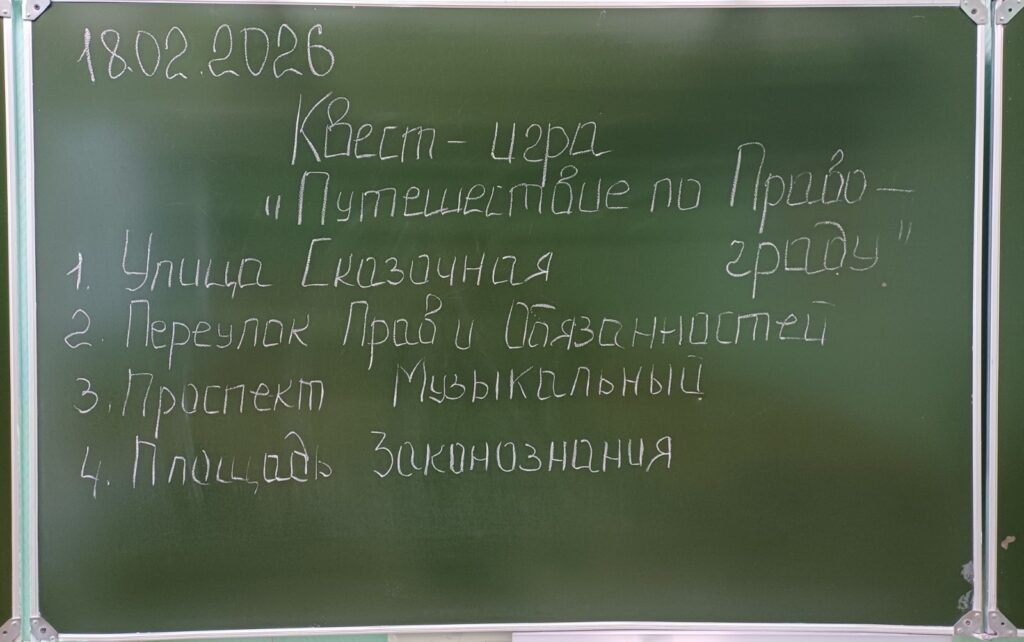 18.02.2026
Квест - игра
"Путешествие по Право-
граду"
1. Улица Сказочная
2. Переулок Прав и Обязанностей
3. Проспект Музыкальный
4. Площадь Законознания